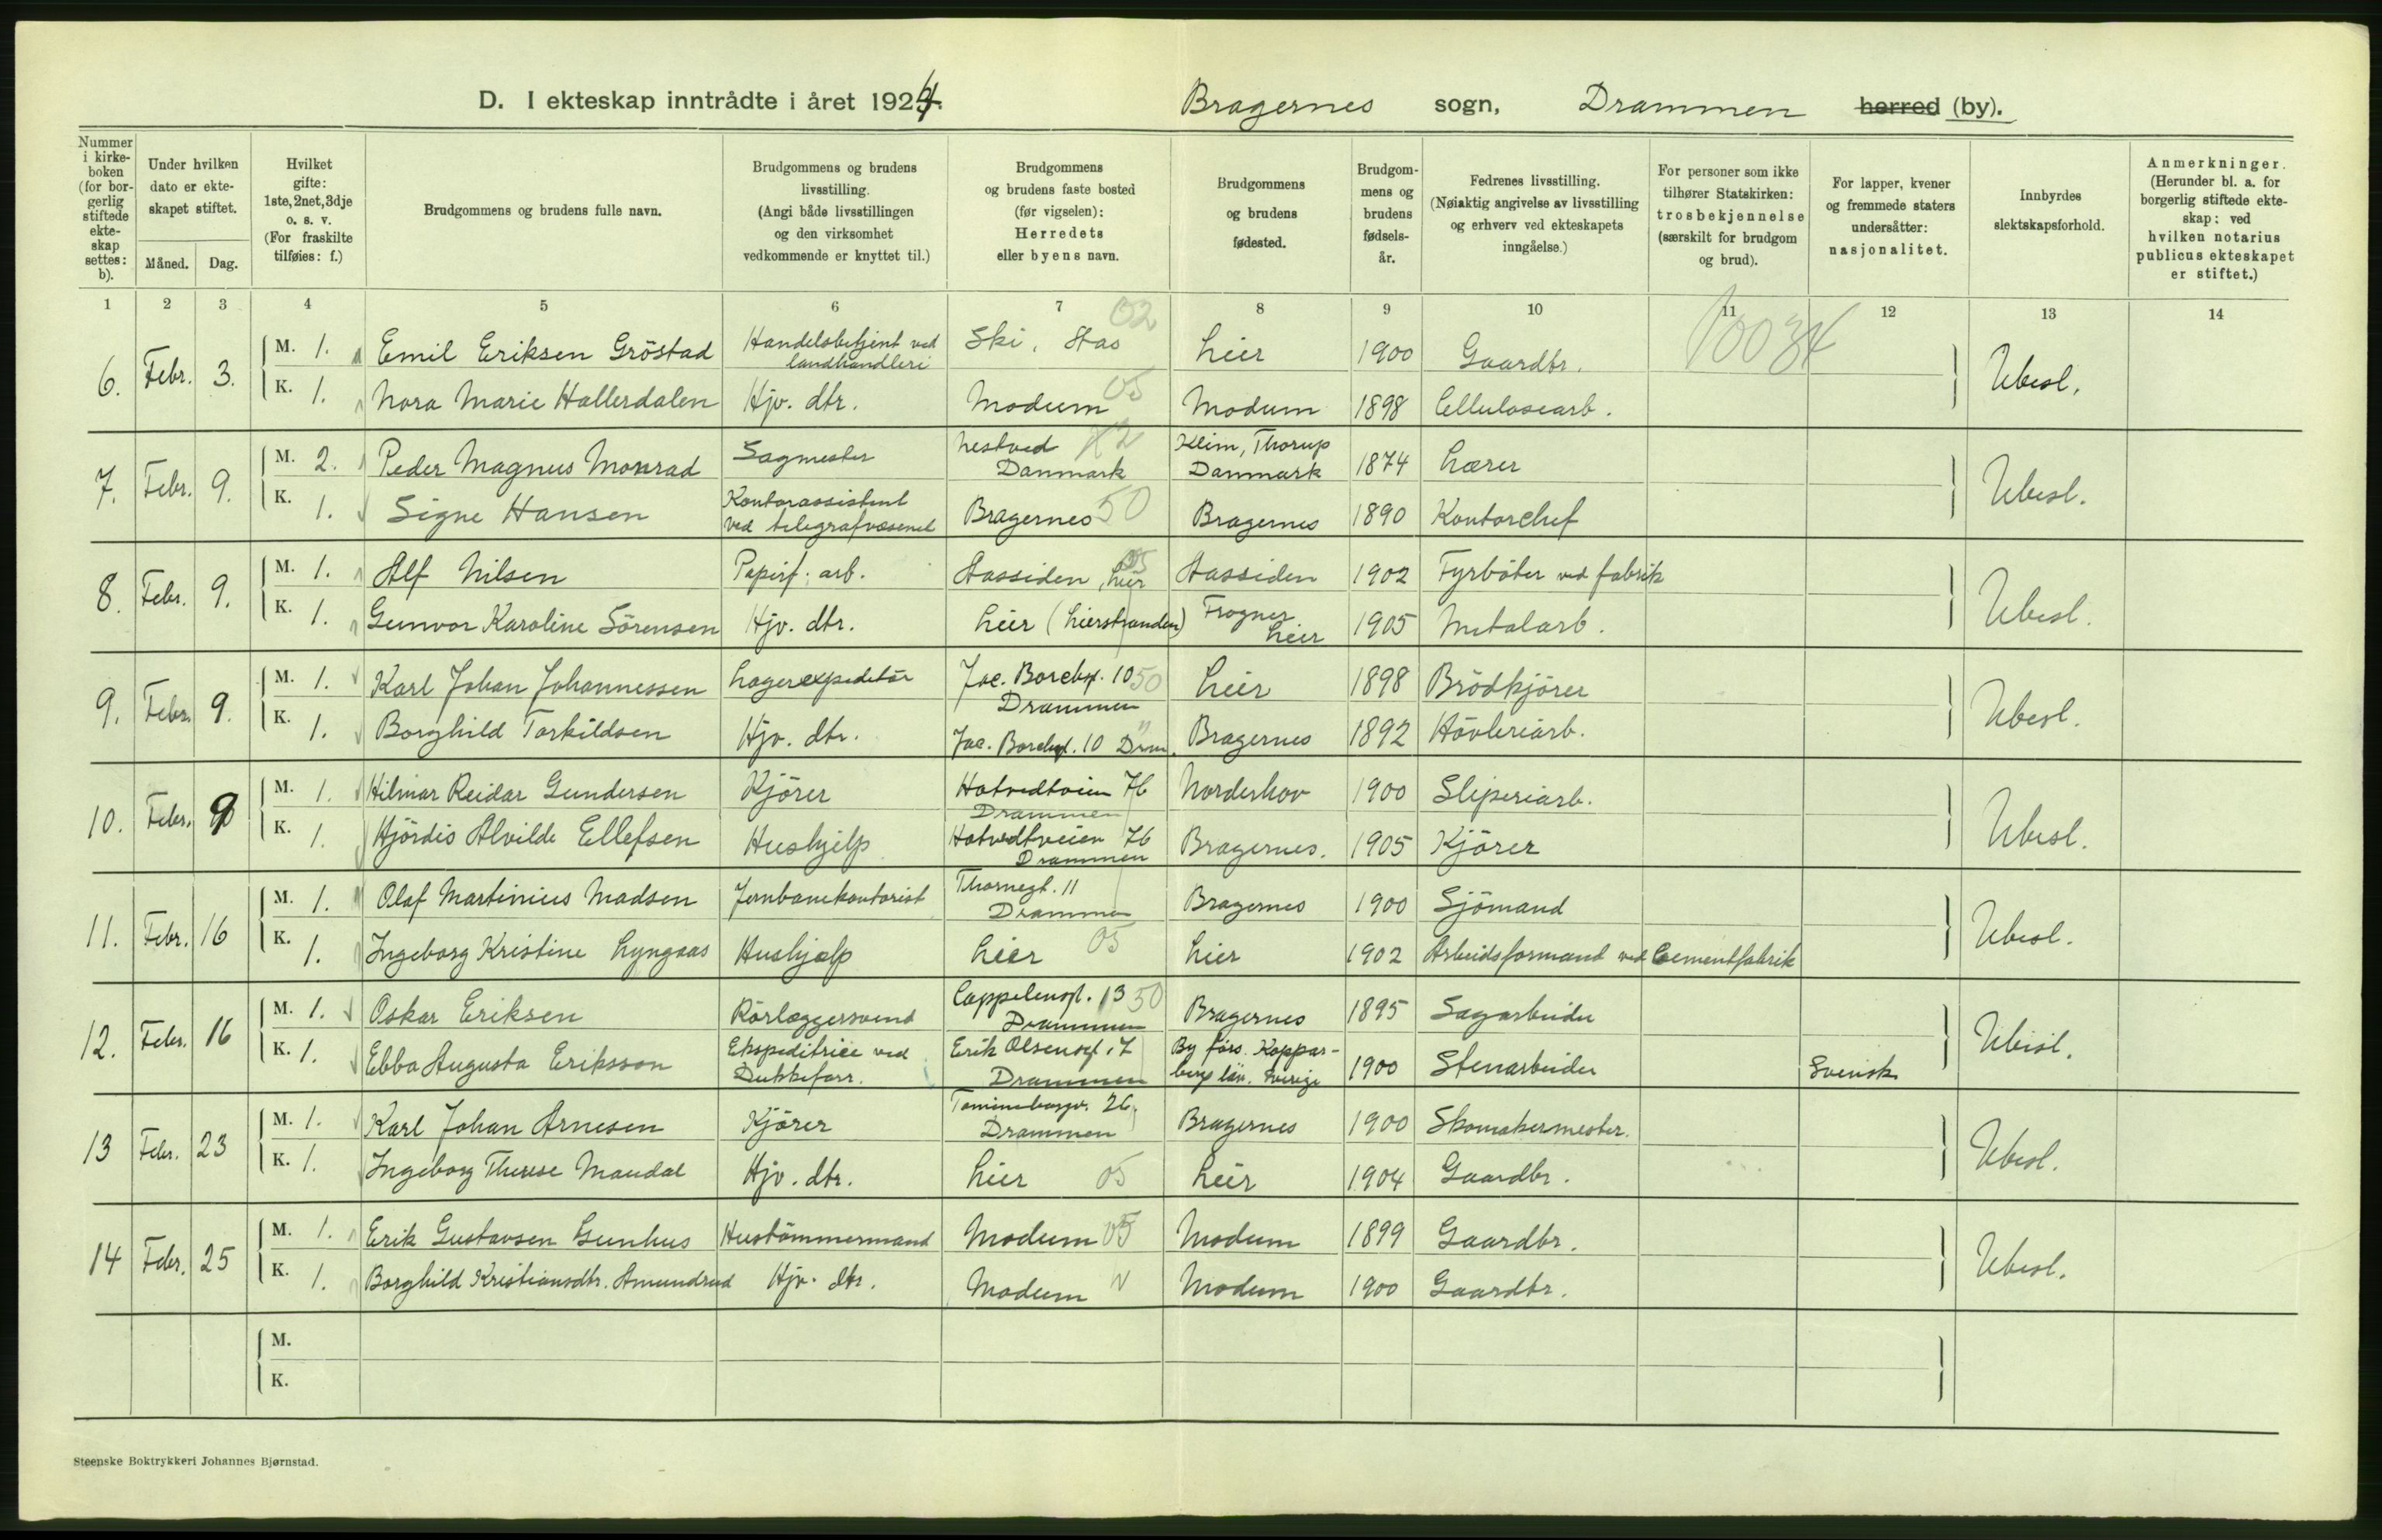 D. I ekteskap inntrådte i året 1924. Bragernes sogn, Drammen herred (by).
Nummer i kirke-boken (for bor-gerlig stiftede ekte-skap settes: b).
Under hvilken dato er ekte-skapet stiftet.
Måned. Dag.
Hvilket gifte: 1ste, 2net, 3dje o. s. v. (For fraskilte tilføies: f.)
Brudgommens og brudens fulle navn.
Brudgommens og brudens livsstilling. (Angi både livsstillingen og den virksomhet vedkommende er knyttet til.)
Brudgommens og brudens faste bosted (før vigselen): Herredets eller byens navn.
Brudgommens og brudens fødested.
Brudgom-mens og brudens fødsels-år.
Fedrenes livsstilling. (Nøiaktig angivelse av livsstilling og erhverv ved ekteskapets inngåelse.)
For personer som ikke tilhører Statskirken: trosbekjennelse (særskilt for brudgom og brud).
For lapper, kvener og fremmede staters undersåtter: nasjonalitet.
Innbyrdes slektskapsforhold.
Anmerkninger. (Herunder bl. a. for borgerlig stiftede ekte-skap: ved hvilken notarius publicus ekteskapet er stiftet.)
1 2 3 4 5 6 7 8 9 10 11 12 13 14
6. Febr. 3. M. 1. Emil Eriksen Gröstad Handelsbetjent ved landhandleri Ski, Skas 02 Lier 1900 Gaardbr.
K. 1. Nora Marie Hallerdalen Hjv. dtr. Modum 05 Modum 1898 Cellulosearb. Ubesl.
7. Febr. 9. M. 2. Peder Magnus Monrad Sagmester Nestved Danmark Klim, Thorup Danmark 1874 Lærer
K. 1. Signe Hansen Kontorassistent ved telegrafvæsenet Bragernes 50 Bragernes 1890 Kontorchef Ubesl.
8. Febr. 9. M. 1. Alf Nilsen Papirf. arb. Aassiden, Lier 05 Aassiden 1902 Fyrböter ved fabrik
K. 1. Gunvor Karoline Sörensen Hjv. dtr. Lier (Lierstranden) Frogner Lier 1905 Metalarb. Ubesl.
9. Febr. 9. M. 1. Karl Johan Johannessen Lagerexpeditör Jac. Borchgt. 10 50 Drammen Lier 1898 Brödkjörer
K. 1. Borghild Torkildsen Hjv. dtr. Jac. Borchgt. 10 Drm. Bragernes 1892 Hövleriarb. Ubesl.
10. Febr. 9 M. 1. Hilmar Reidar Gundersen Kjörer Hotvedtveien 76 Drammen Norderhov 1900 Sliperiarb.
K. 1. Hjördis Alvilde Ellefsen Hushjelp Hotvedtveien 76 Drammen Bragernes. 1905 Kjörer Ubesl.
11. Febr. 16 M. 1. Olaf Martinius Madsen Jernbanekontorist Thornegt. 11 Drammen Bragernes 1900 Sjömand
K. 1. Ingeborg Kristine Lyngaas Hushjælp Lier 05 Lier 1902 Arbeidsformand ved Cementfabrik Ubesl.
12. Febr. 16 M. 1. Oskar Eriksen Rörlæggersvend Cappelensgt. 13 50 Drammen Bragernes 1895 Sagarbeider
K. 1. Ebba Augusta Eriksson Ekspeditrice ved Dukkeforr. Erik Olsensgt. 7 Drammen By förs. Koppar-bergs län. Sverige 1900 Stenarbeider Svensk Ubesl.
13 Febr. 23 M. 1. Karl Johan Arnesen Kjörer 26. Drammen Bragernes 1900 Skomakermester.
K. 1. Ingeborg Therese Mandal Hjv. dtr. Lier 05 Lier 1904 Gaardbr. Ubesl.
14 Febr. 25 M. 1. Erik Gustavsen Gunhus Hustömmermand Modum 05 Modum 1899 Gaardbr.
K. 1. Borghild Kristiansdtr. Amundrud Hjv. dtr. Modum Modum 1900 Gaardbr. Ubesl.
M.
K.
Steenske Boktrykkeri Johannes Bjørnstad.